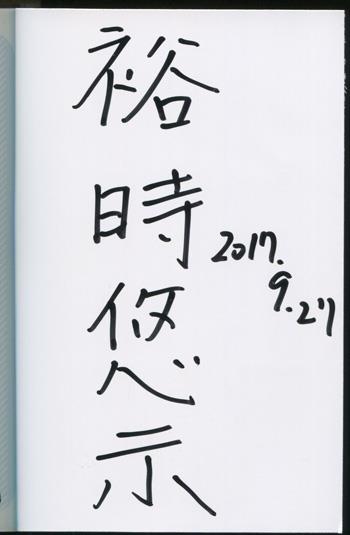 裕時悠示
2017.
9.27